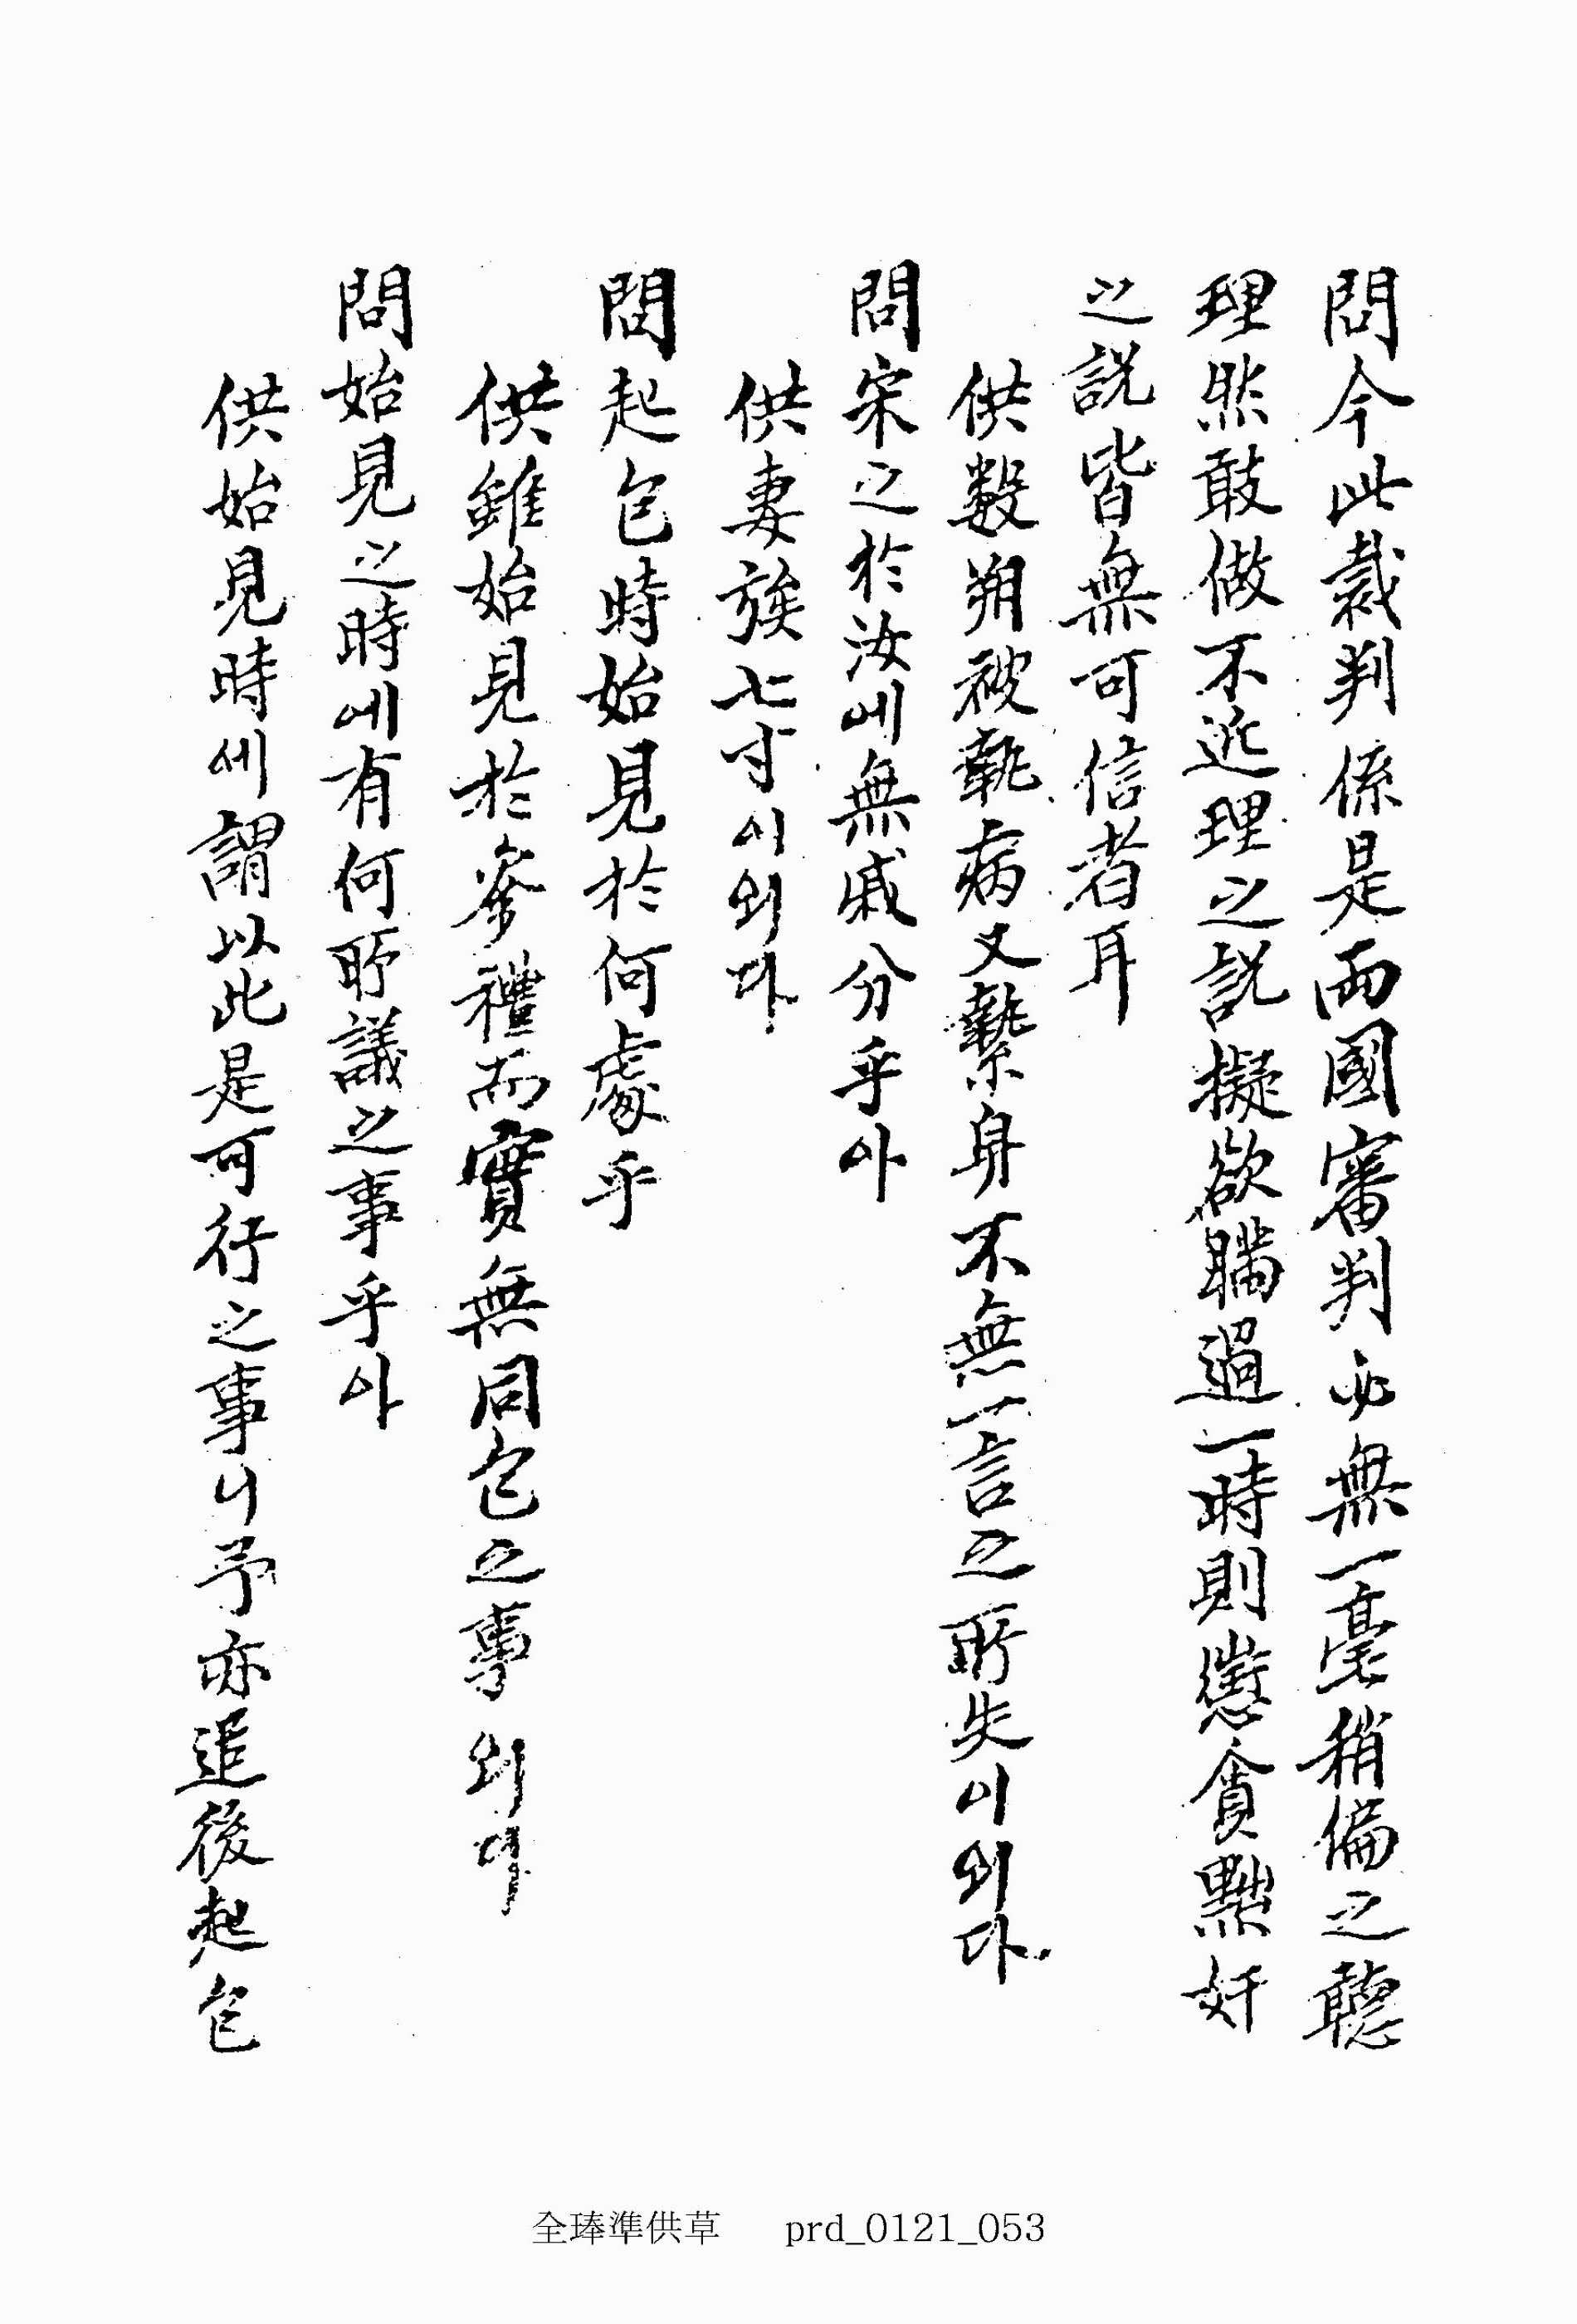 問今此裁判係是兩國審判必無一毫稍偏之聽
理然敢做不近理之説擬欲瞞過一時則懲貪黜奸
之説皆無可信者耳
供數朔被執病又繫身不無一言之所失이외다
問宋之於汝에無戚分乎아
供妻族七寸이외다
問起包時始見於何處乎
供雖始見於參禮而實無同包之事외다
問始見之時에有何所議之事乎아
供始見時에謂以此是可行之事니予亦追後起包
全琫準供草 prd_0121_053